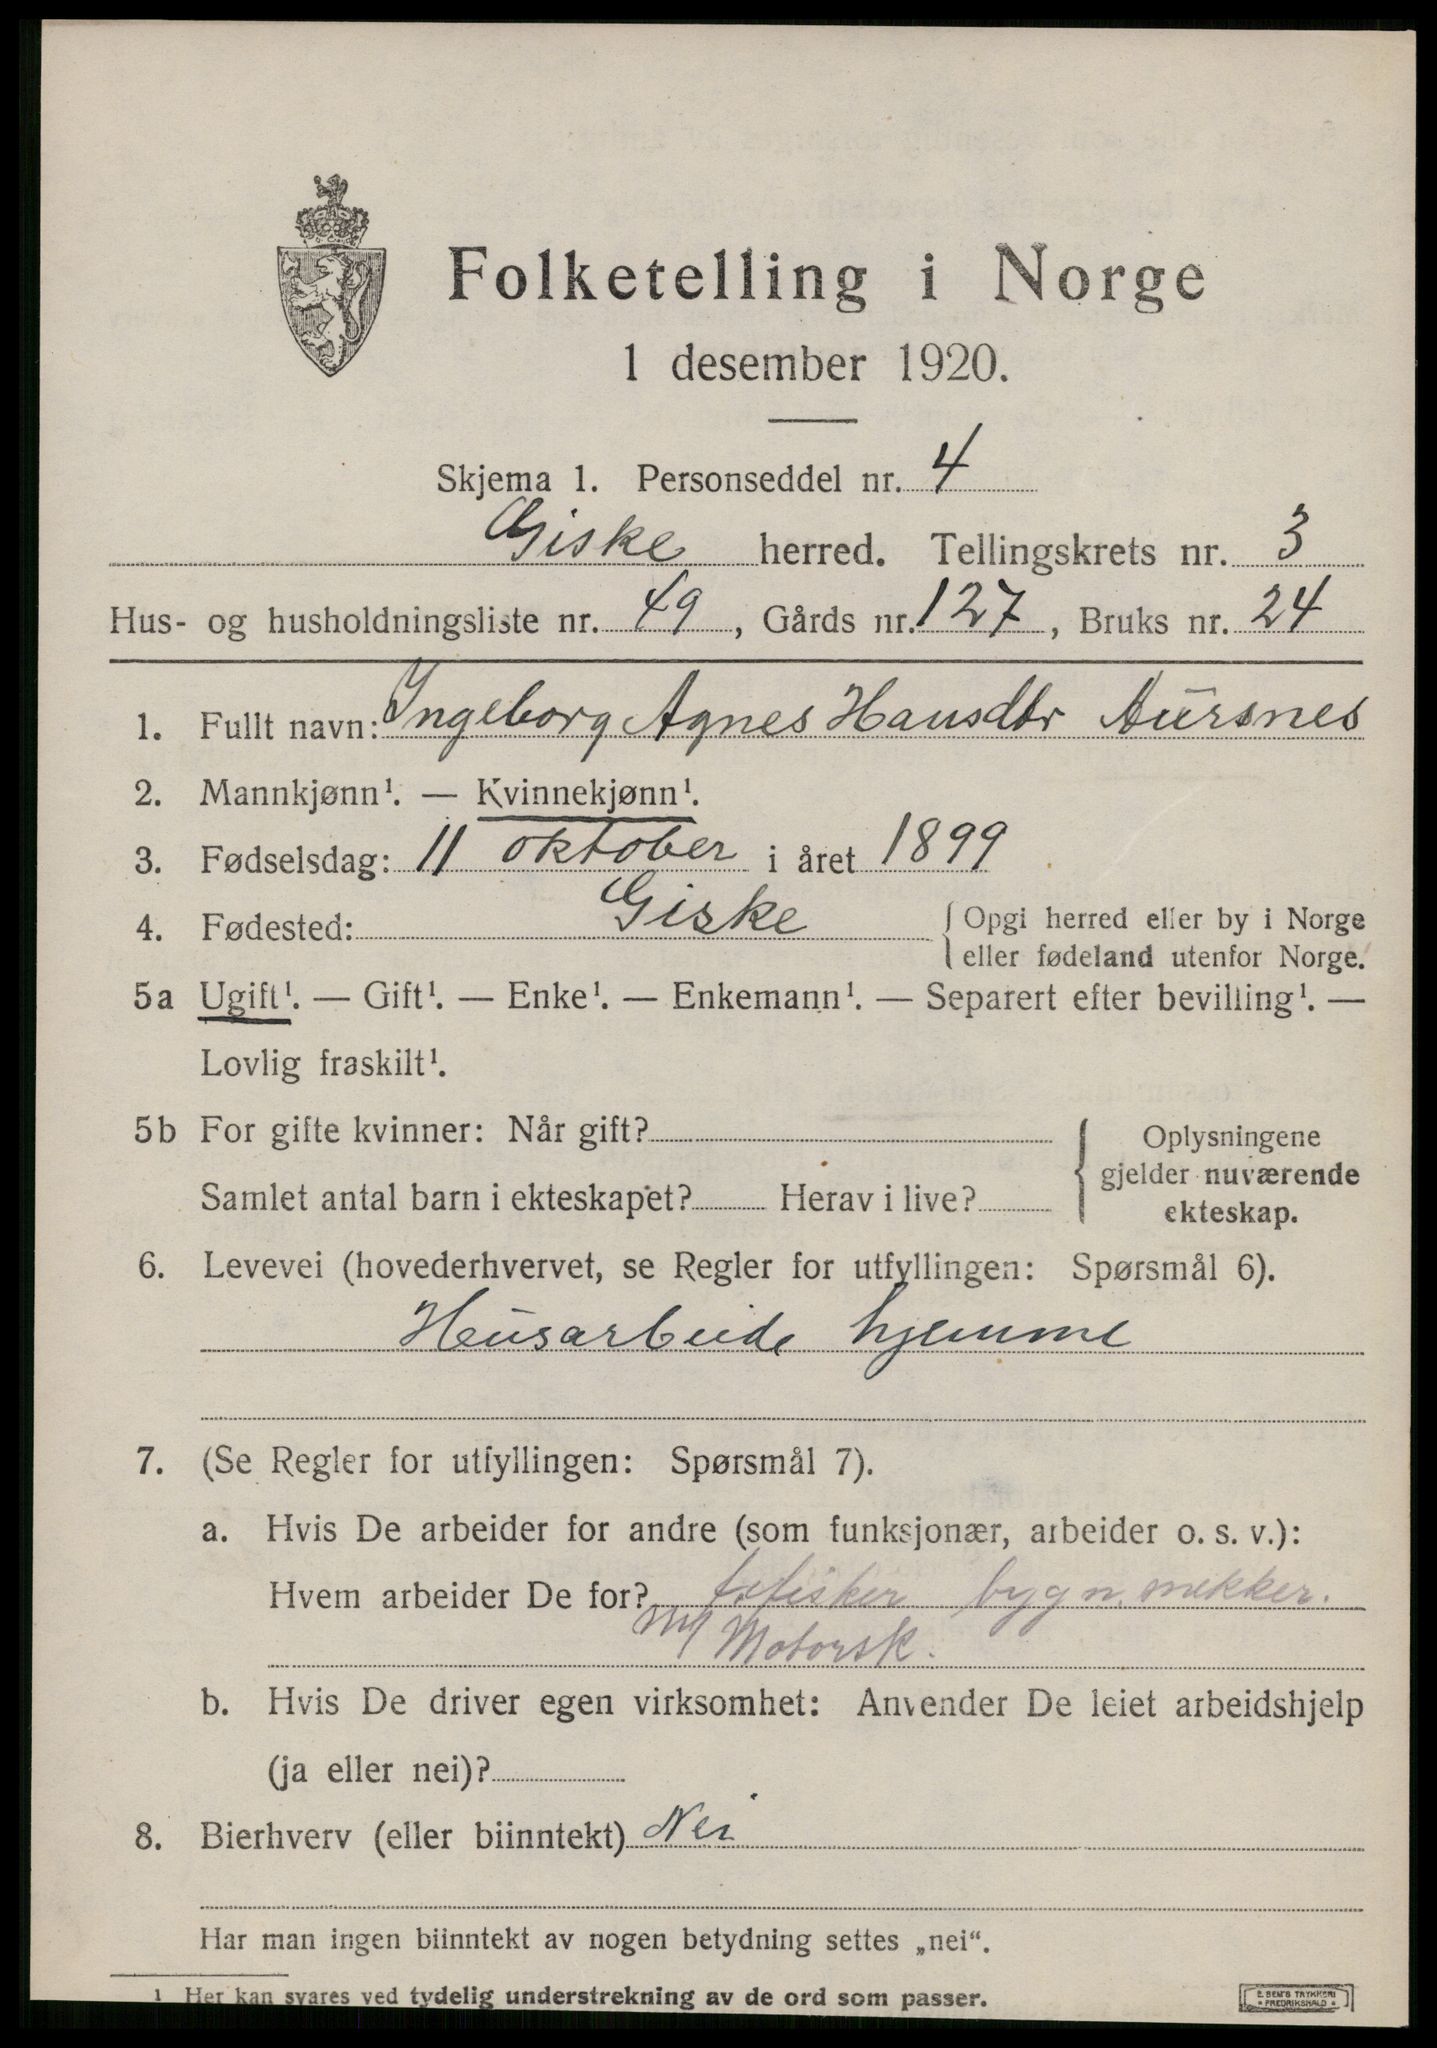 Folketelling i Norge
1 desember 1920.
Skjema 1. Personseddel nr. 4
Giske herred. Tellingskrets nr. 3
Hus- og husholdningsliste nr. 49, Gårds nr. 127, Bruks nr. 24
1. Fullt navn: Ingeborg Agnes Hansdtr Aursnes
2. Mannkjønn¹. — Kvinnekjønn¹.
3. Fødselsdag: 11 oktober i året 1899
4. Fødested: Giske {Opgi herred eller by i Norge
eller fødeland utenfor Norge.
5a Ugift¹. — Gift¹. — Enke¹. — Enkemann¹. — Separert efter bevilling¹. —
Lovlig fraskilt¹.
5b For gifte kvinner: Når gift?
Samlet antal barn i ekteskapet? Herav i live?
Oplysningene
gjelder nuværende
ekteskap.
6. Levevei (hovederhvervet, se Regler for utfyllingen: Spørsmål 6).
Husarbeide hjemme
7. (Se Regler for utfyllingen: Spørsmål 7).
a. Hvis De arbeider for andre (som funksjonær, arbeider o. s. v.):
Hvem arbeider De for? f. fisker bygn. snekker.
m/ Motorsk.
b. Hvis De driver egen virksomhet: Anvender De leiet arbeidshjelp
(ja eller nei)?
8. Bierhverv (eller biinntekt) Nei
Har man ingen biinntekt av nogen betydning settes „nei“.
¹ Her kan svares ved tydelig understrekning av de ord som passer.
E. SEM'S TRYKKERI
FREDRIKSHALD